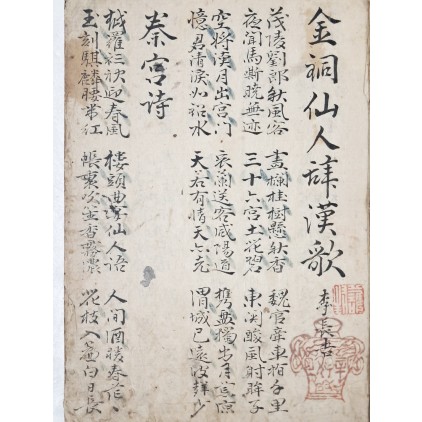 金祠仙人辞漢歌
李長吉
茂陵劉郎秋風客 畫欄桂樹懸秋香 魏官牽車指千里
夜聞馬嘶曉無迹 三十六宮土花碧 東関酸風射眸子
空将漢月出宮門 衰蘭送客咸陽道 携盤獨出月荒涼
憶君清淚如鉛水 天若有情天亦老 渭城已遠波聲小
秦宮詩
越羅衫袂迎春風 樓頭曲宴仙人語 人間酒暖春茫々
玉刻騏驎腰帯紅 帳裏吹笙香霧濃 花枝入簾白日長